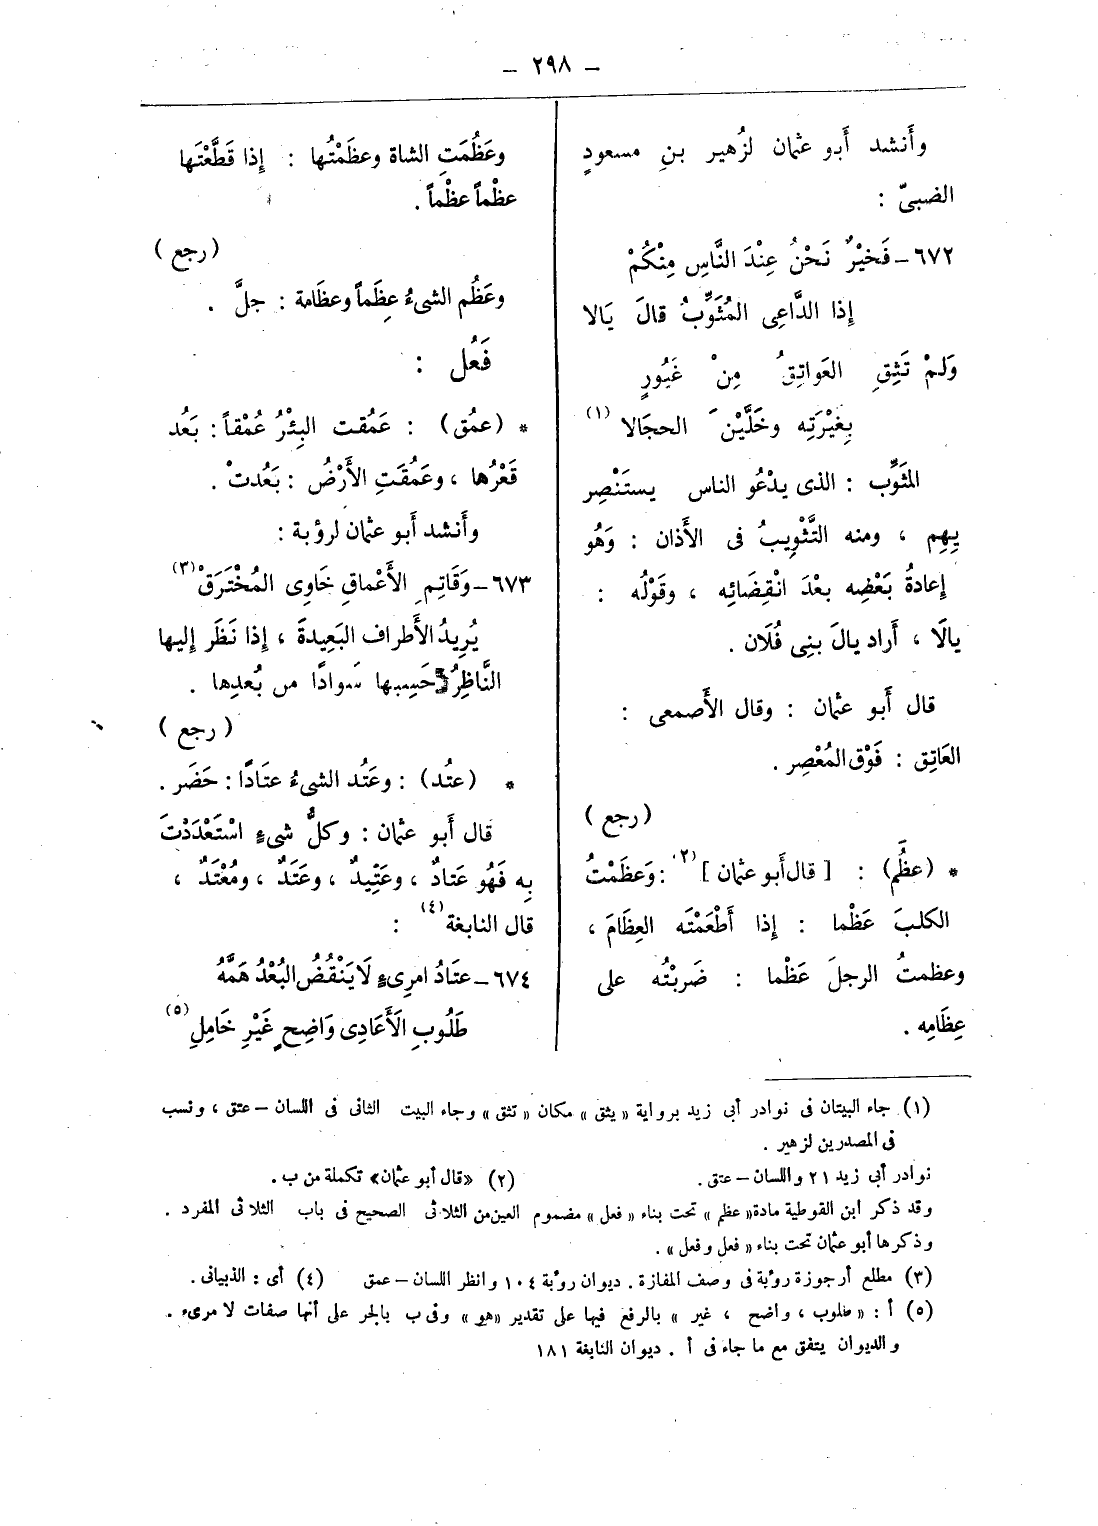 – ٢٩٨ –
وأَنشد أَبو عثمان لزُهير بنِ مسعودٍ
الضبىّ :
٦٧٢ – فَخيْرٌ نَحْنُ عِنْدَ النَّاسِ مِنْكُمْ
إذا الدَّاعِى المُثَوِّبُ قالَ يَالا
وَلمْ تَثِقِ العَواتِقُ مِنْ غَيُورٍ
بِغْيْرَتِه وخَلَّيْنَ الحجَالا (١)
المثَوِّب : الذى يدْعُو الناس يستَنْصِر
بِهِم ، ومنه التَّثْوِيبُ فى الأَذان : وَهُو
إعادةُ بَعْضِه بعْدَ انْقِضَائِه ، وقَوْلُه :
يالَا ، أَراد يالَ بنِى فُلَان .
قال أَبو عثمان : وقال الأَصمعى :
العَاتِق : فَوْق المُعْصِر .
( رجع )
* (عظُم) : [ قال أَبو عثمان ] (٢) : وَعَظَمْتُ
الكلبَ عَظْما : إذا أَطْعَمْتَه العِظَامَ ،
وعظمتُ الرجلَ عَظْما : ضَربْتُه على
عِظَامِه .
وعَظُمَتِ الشاة وعظَمْتُها : إذا قَطَّعْتَها
عظْماً عظْماً .
( رجع )
وعَظُم الشىءُ عِظَماً وعظَامة : جلَّ .
فَعُل :
* (عمُق) : عَمُقت البِئْرُ عُمْقاً : بَعُد
قَعْرُها ، وعَمُقَتِ الأَرْضُ : بَعُدتْ .
وأَنشد أَبو عثمان لرؤبة :
٦٧٣ – وَقَاتِمِ الأَعْماقِ خَاوِى المُخْتَرَقْ (٣)
يُرِيدُ الأَطراف البَعِيدةَ ، إذا نَظَر إليها
النَّاظِرُ حَسِبها سَوادًا من بُعدِها .
( رجع )
* (عتُد) : وعَتُد الشىءُ عتَادًا : حَضَر .
قال أَبو عثمان : وكلُّ شىءٍ اسْتَعْدَدْتَ
بِه فَهُو عَتادٌ ، وعَتِيدٌ ، وعَتَدٌ ، ومُعْتَدٌ ،
قال النابغة (٤) :
٦٧٤ – عتَادُ امرِىءٍ لَا يَنْقُضُ البُعْدُ هَمَّهُ
طَلُوبِ الَأَعَادِى وَاضِحٍ غَيْرِ خَامِلِ (٥)
(١) جاء البيتان فى نوادر أبى زيد برواية « يثق » مكان « تثق » وجاء البيت الثانى فى اللسان – عتق ، ونسب
فى المصدرين لزهير .
نوادر أبى زيد ٢١ واللسان – عتق . (٢) « قال أبو عثمان » تكملة من ب .
وقد ذكر ابن القوطية مادة « عظم » تحت بناء « فعل » مضموم العين من الثلاثى الصحيح فى باب الثلاثى المفرد .
وذكرها أبو عثمان تحت بناء « فعل وفعل » .
(٣) مطلع أرجوزة رؤبة فى وصف المفازة . ديوان رؤبة ١٠٤ وانظر اللسان – عمق (٤) أى : الذبيانى .
(٥) أ : « طلوب ، واضح ، غير » بالرفع فيها على تقدير « هو » وفى ب بالجر على أنها صفات لامرىء .
والديوان يتفق مع ما جاء فى أ . ديوان النابغة ١٨١